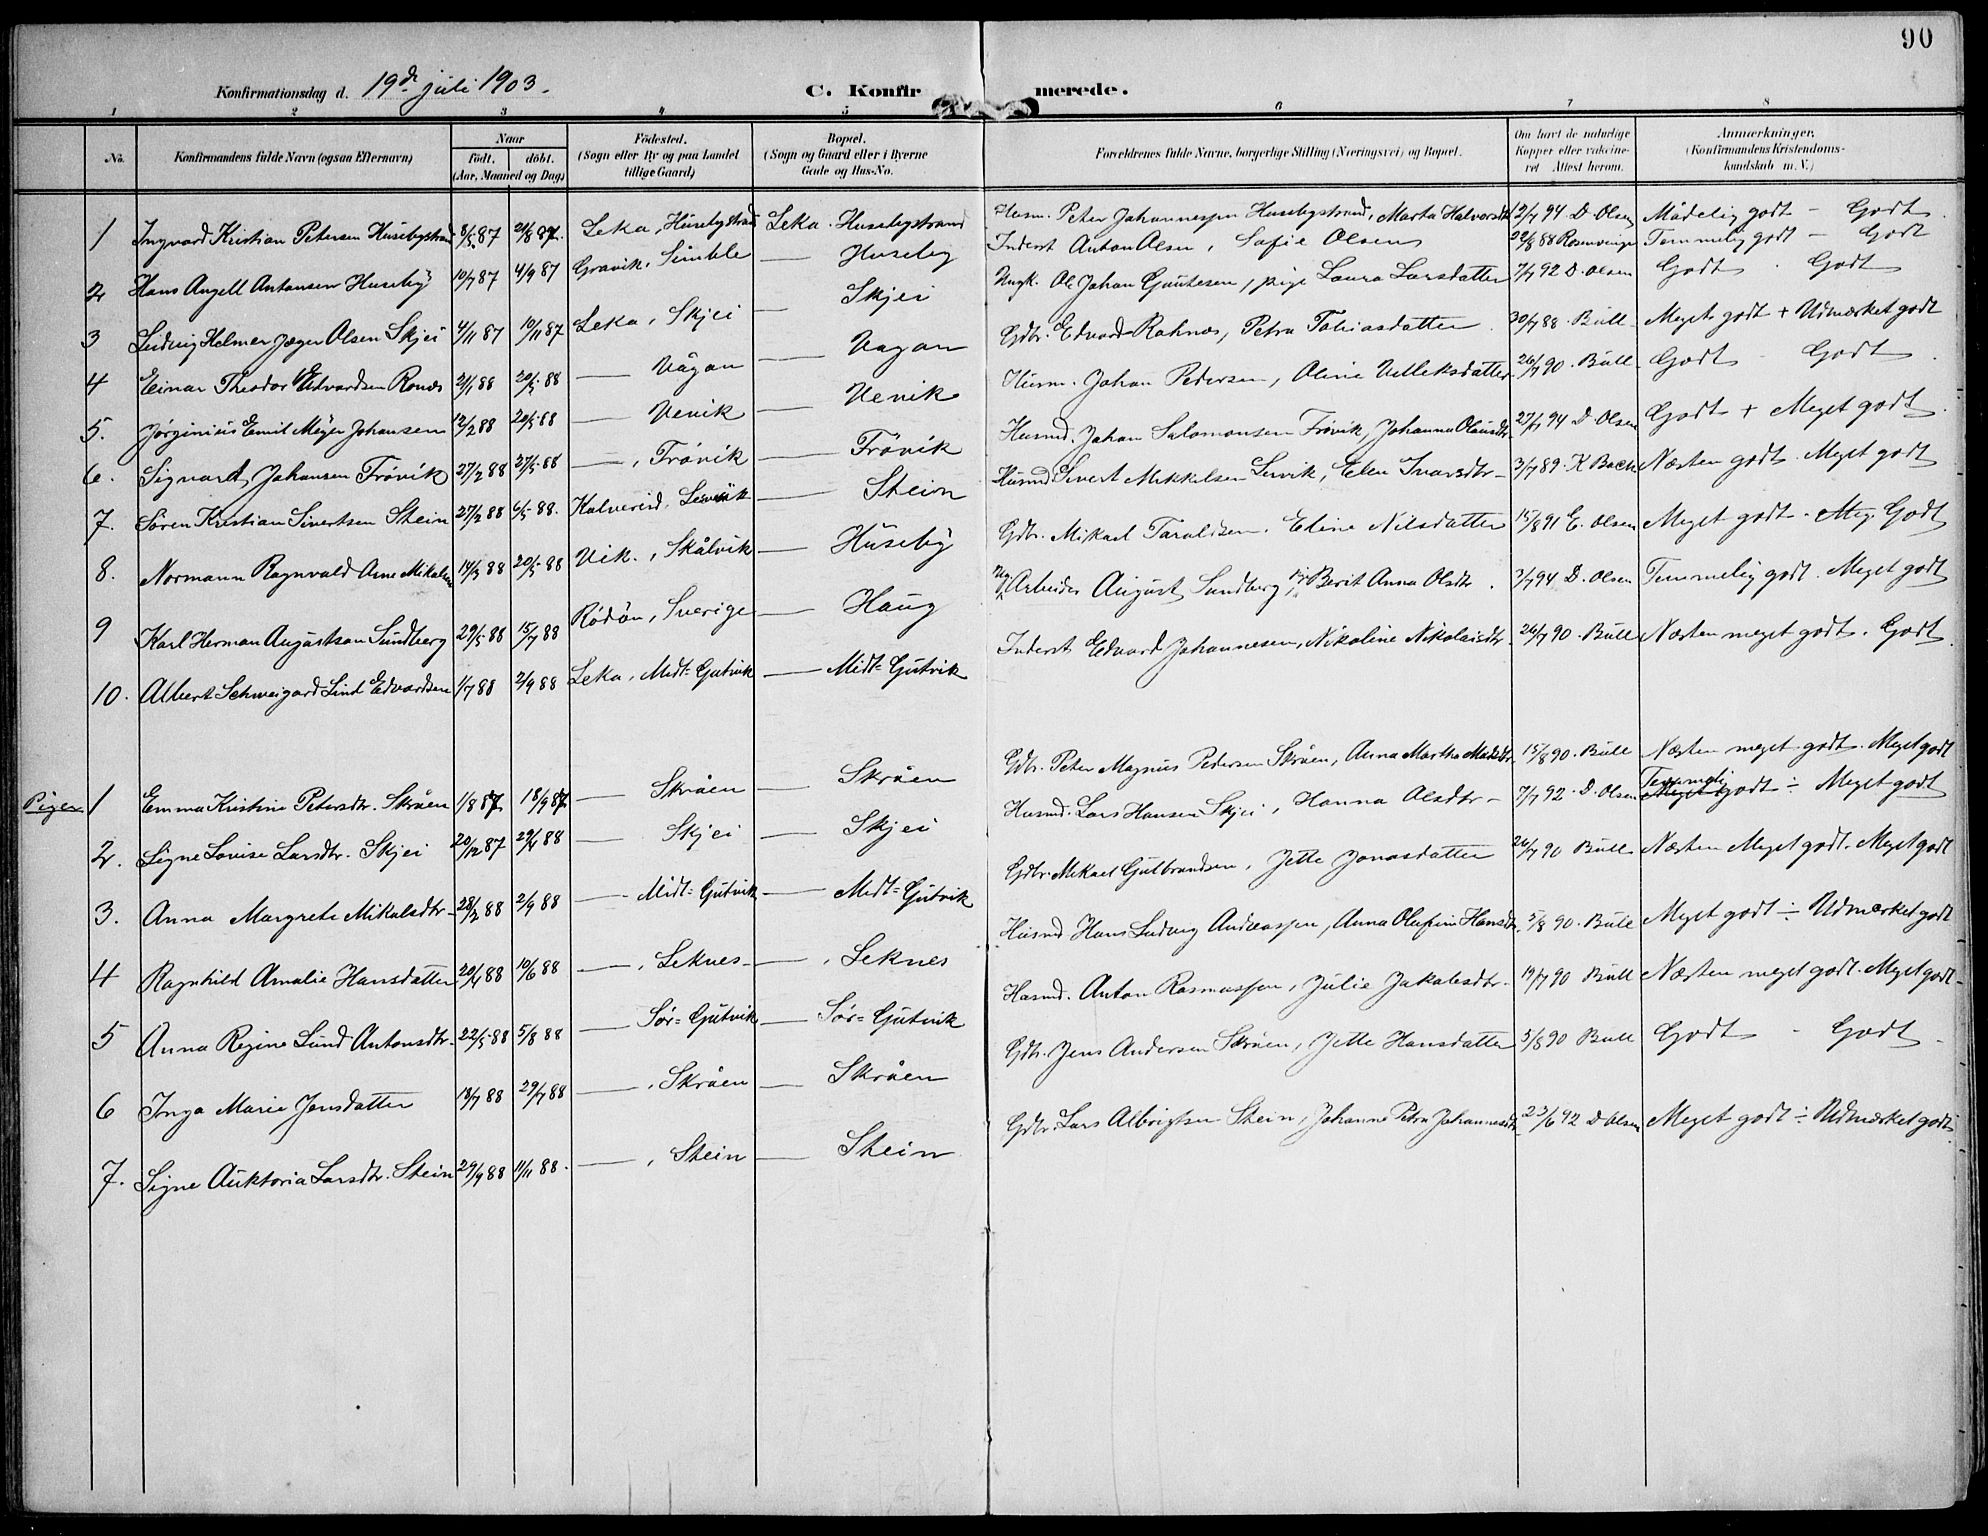 90
Konfirmationsdag d. 19de juli 1903.
C. Konfirmerede.
1 2 3 4 5 6 7 8
No. Konfirmandens fulde Navn (ogsaa Efternavn) Naar født. døbt. (Aar, Maaned og Dag) Fødested. (Sogn eller By og paa Landet tillige Gaard) Bopæl. (Sogn og Gaard eller i Byerne Gade og Hus-No. Forældrenes fulde Navne, borgerlige Stilling (Næringsvei) og Bopæl. Om havt de naturlige Kopper eller vaccineret Attest herom. Anmærkninger. (Konfirmandens Kristendomskundskab m. V.)
1 Ingvard Kristian Petersen Husebystrand 8/5 87 21/8 87. Leka, Husebystrand Leka. Husebystrand Husm. Peter Johannessen Husebystrand, Marta Halvorsdtr 12/7 94 D. Olsen Mådelig godt - Godt.
2 Hans Angell Antonsen Huseby 10/7 87 4/9 87 Gravik, Simble — Huseby Inderst Anton Olsen, Sofie Olsen 29/8 88 Rosenvinge Temmelig godt - Godt
3 Ludvig Helmer Jæger Olsen Skjei 4/11 87 10/11 87 Leka, Skjei — Skjei Ungk. Ole Johan Gautesen, pige Laura Larsdatter 7/7 92 D. Olsen Godt. Godt
4 Einar Theodor Edvardsen Ronæs 2/1 88 20/5 88 — Vågan — Vagan Gdbr. Edvard Rahnæs, Petra Tobiasdatter. 30/7 88 Bull Meget godt + Udmærket godt
5. Jørginius Emil Meyer Johansen 12/2 88 20/5 88 — Venik — Venik Husm. Johan Pedersen, Oline Velleksdatter 26/7 90. Bull Godt - Godt.
6. Sigvart Johansen Frøvik 27/2 88 27/5 88 —, Frøvik — Frøvik Husmd. Johan Salomonsen Frøvik, Johanna Olausdtr 27/7 94 D. Olsen Godt + Meget godt.
7. Søren Kristian Sivertsen Stein 27/2 88 6/5 88. Kalvereid, Lervik — Stein Husmd Sivert Mikkelsen Lervik, Elen Ivarsdtr - 3/7 89. K Bach Næsten godt. Meget godt
8. Normann Ragnvald Arne Mikalsen 14/3 88 20/5 88 Vik., Skålvik — Huseby Gdbr. Mikael Taraldsen. Eline Nilsdatter 15/8 91 E. Olsen Meget godt. Meg. Godt
9 Karl Herman Augustson Sundberg 29/5 88 15/7 88 Rødøn, Sverige — Haug Ug. Arbeider August Sundberg, pi. Berit Anna Olsdtr. 3/7 94 D. Olsen Temmelig godt. Meget godt
10. Albert Schweigard Lind Edvardsen 1/7 88 2/9 88 Leka, Midt=Gutvik — Midt=Gutvik Inderst Edvard Johannesen, Nikoline Nikolaisdtr. 26/7 90. Bull Næsten meget godt. Godt.
Piger 1 Emma Kristine Petersdtr. Skråen 1/8 87 18/9 87 — Skråen — Skråen Gdbr. Peter Magnus Pedersen Skråen, Anna Martha Matsdtr. 15/8 90. Bull Næsten meget godt. Meget godt
2. Signe Lovise Larsdtr. Skjei 20/12 87 29/4 88 — Skjei — Skjei Husmd. Lars Hansen Skjei, Hanna Olsdtr - 7/7 92. D. Olsen Temmeli Meget godt ÷ Meget godt
3. Anna Margrete Mikalsdtr 28/2 88 2/9 88 — Midt=Gutvik — Midt=Gutvik Gdbr. Mikael Gulbrandsen, Jette Jonasdatter 26/7 90 Bull Næsten Meget godt. Meget godt
4 Ragnhild Amalie Hansdatter 20/4 88 10/6 88 —, Leknes — , Leknes Husmd Hans Ludvig Andreassen, Anna Olufine Hansdtr. 5/8 90. Bull Meget godt ÷ Udmærket godt
5 Anna Regine Lund Antonsdtr. 22/5 88 5/8 88 — Sør=Gutvik — Sør=Gutvik Husmd. Anton Rasmussen, Julie Jakobsdtr. 19/7 90 Bull Næsten meget godt. Meget godt
6 Inga Marie Jensdatter 13/7 88 29/7 88 —, Skråen — Skråen Gdb. Jens Andersen Skråen, Jette Hansdatter 5/8 90 Bull Godt - Godt.
7. Signe Auktoria Larsdtr. Stein 29/9 88 11/11 88. —, Stein — Stein Gdbr. Lars Albrigtsen Stein, Johanne Petra Johannesdtr 23/6 92 D Olsen Meget godt ÷ Udmærket godt